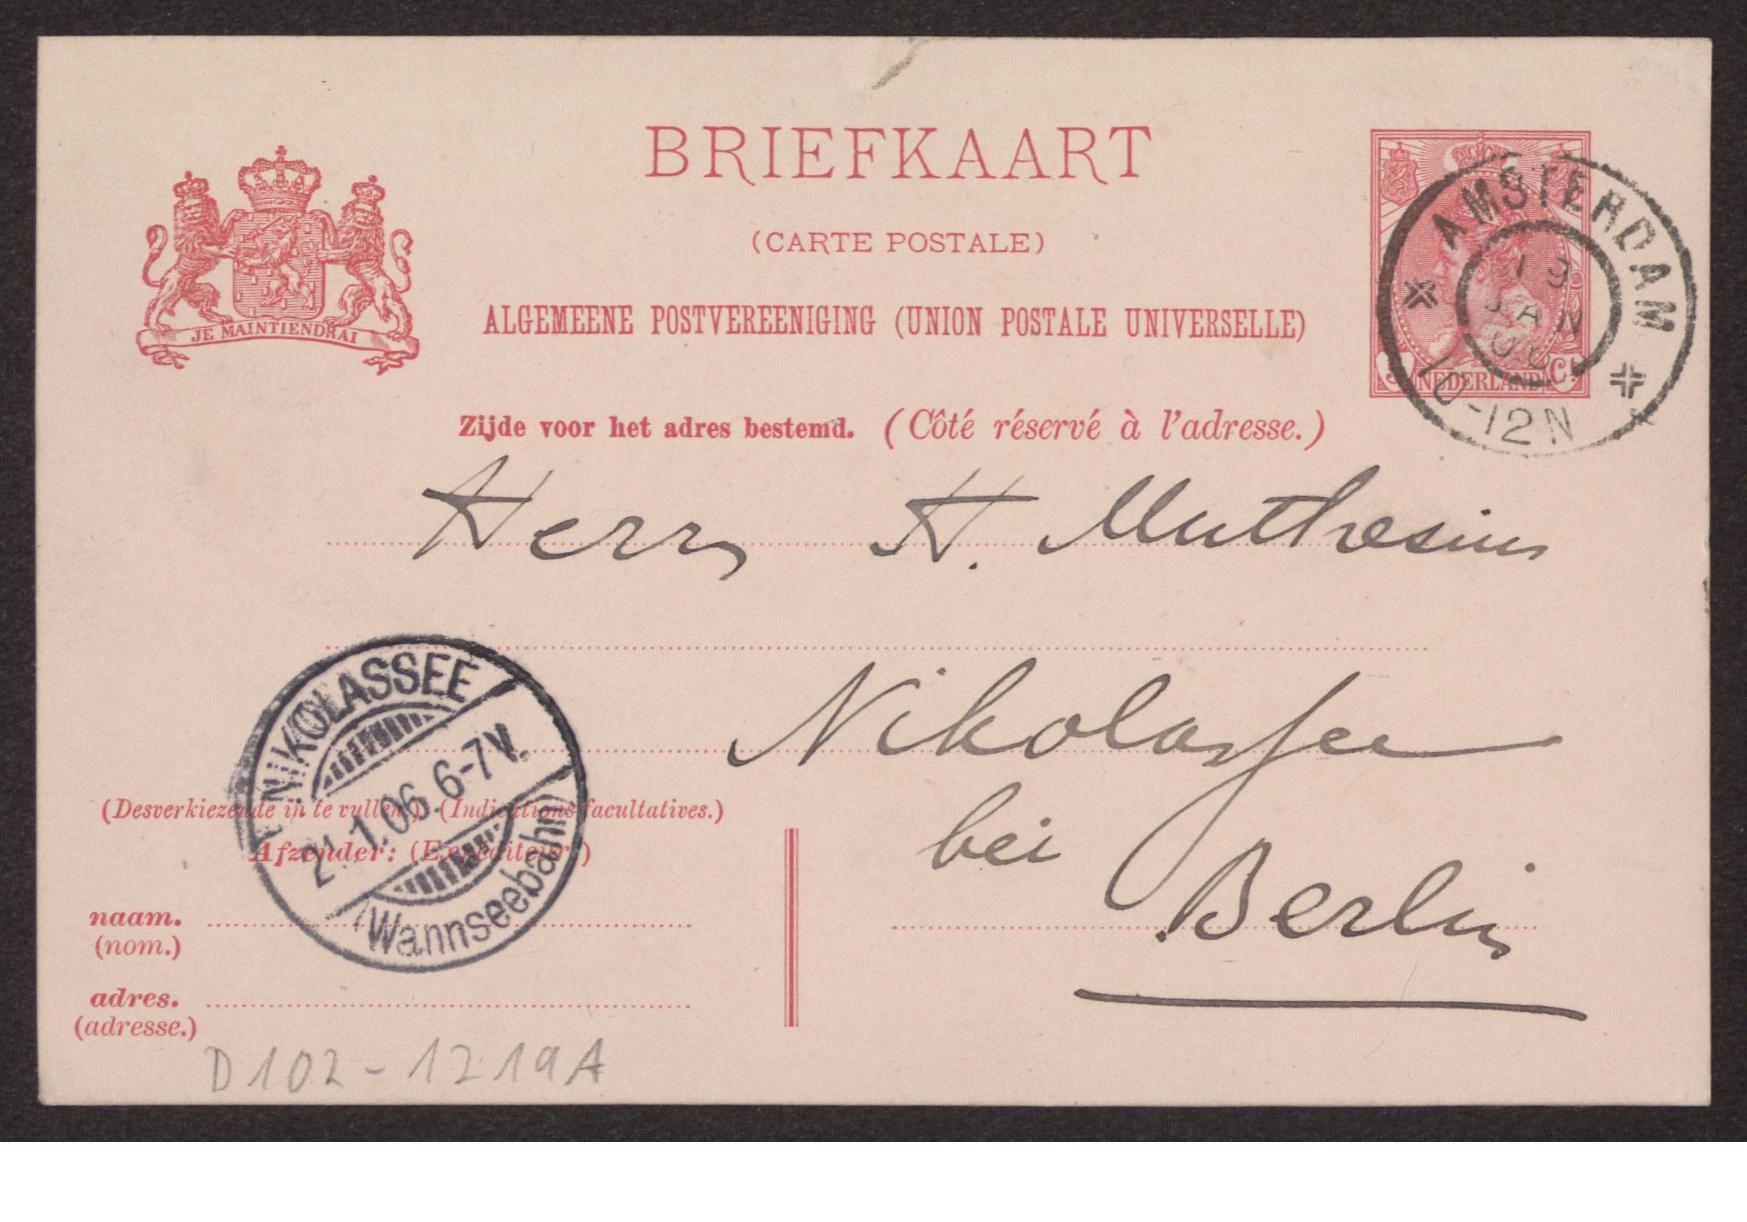 BRIEFKAART
(CARTE POSTALE)
ALGEMEENE POSTVEREENIGING (UNION POSTALE UNIVERSELLE)
JE MAINTIENDRAI
Zijde voor het adres bestemd. (Côté réservé à l'adresse.)
AMSTERDAM
19
JAN
06
10-12N
5 NEDERLAND Ct
Herrn H. Muthesius
Nikolassee
bei
Berlin
NIKOLASSEE
21.1.06 6-7V.
(Wannseebahn)
(Desverkiezende in te vullen.) (Indications facultatives.)
Afzender: (Expéditeur:)
naam.
(nom.)
adres.
(adresse.)
D102-1219A